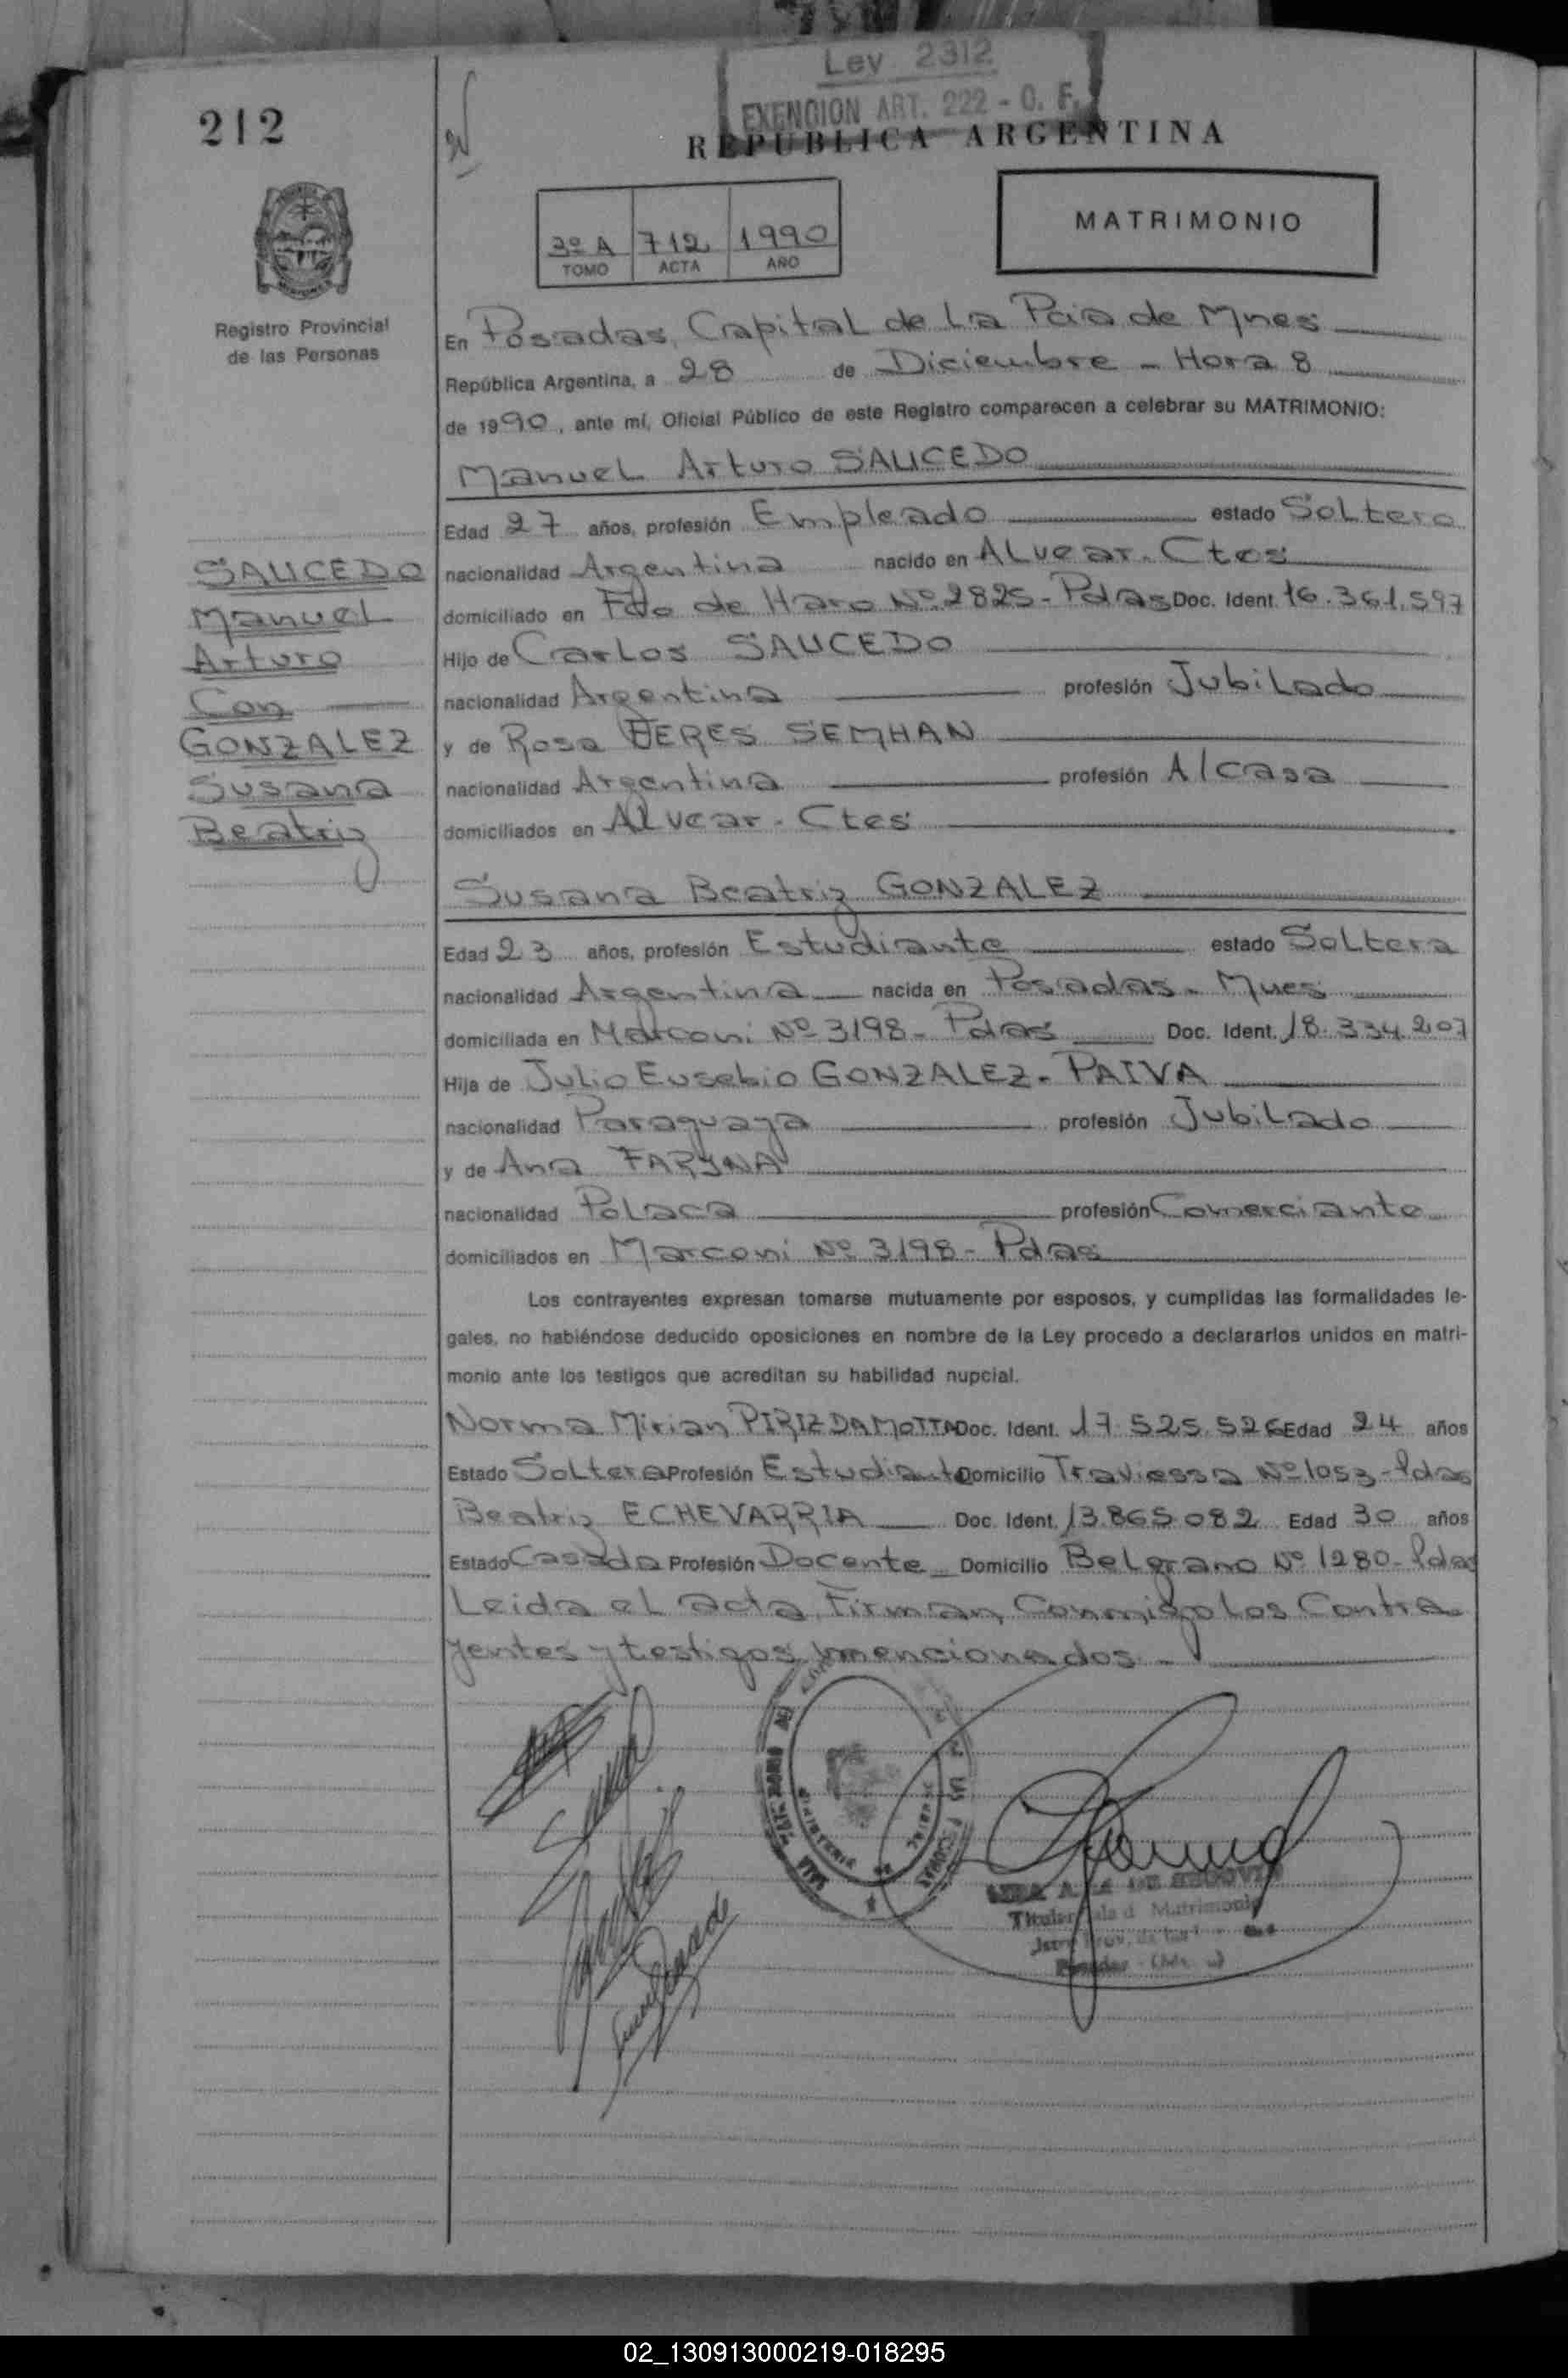 Ley 2312
EXENCION ART. 222 - O. F.
212
REPUBLICA ARGENTINA
3º A 712 1990
TOMO ACTA AÑO
MATRIMONIO
Registro Provincial
de las Personas
En Posadas, Capital de La Pcia de Mnes
República Argentina, a 28 de Diciembre - Hora 8
de 1990, ante mí, Oficial Público de este Registro comparecen a celebrar su MATRIMONIO:
Manuel Arturo SAUCEDO
Edad 27 años, profesión Empleado estado Soltero
nacionalidad Argentina nacido en ALvear. Ctes
domiciliado en Fdo de Haro Nº 2825 - Pdas Doc. Ident. 16.361.597
Hijo de Carlos SAUCEDO
nacionalidad Argentina profesión Jubilado
y de Rosa SEMHAN
nacionalidad Argentina profesión A/casa
domiciliados en ALvear - Ctes
SAUCEDO
Manuel
Arturo
Con
GONZALEZ
Susana
Beatriz
Susana Beatriz GONZALEZ
Edad 23 años, profesión Estudiante estado Soltera
nacionalidad Argentina nacida en Posadas - Mnes
domiciliada en Marconi Nº 3198 - Pdas Doc. Ident. 18.334.207
Hija de Julio Eusebio GONZALEZ - PAIVA
nacionalidad Paraguaya profesión Jubilado
y de Ana FARYNA
nacionalidad Polaca profesión Comerciante
domiciliados en Marconi Nº 3198 - Pdas
Los contrayentes expresan tomarse mutuamente por esposos, y cumplidas las formalidades le-
gales, no habiéndose deducido oposiciones en nombre de la Ley procedo a declararlos unidos en matri-
monio ante los testigos que acreditan su habilidad nupcial.
Norma Mirian PIRIZ DA MOTTA Doc. Ident. 17.525.526 Edad 24 años
Estado Soltera Profesión Estudiante Domicilio Traviessa Nº 1053 - Pdas
Beatriz ECHEVARRIA Doc. Ident. 13.865.082 Edad 30 años
Estado Casada Profesión Docente Domicilio Belgrano Nº 1280 - Pdas
Leida el acta, Firman, Conmigo Los Contra
yentes y testigos mencionados. -
DE SEGOVIA
Titular Sala d Matrimonio
Posadas
02_130913000219-018295